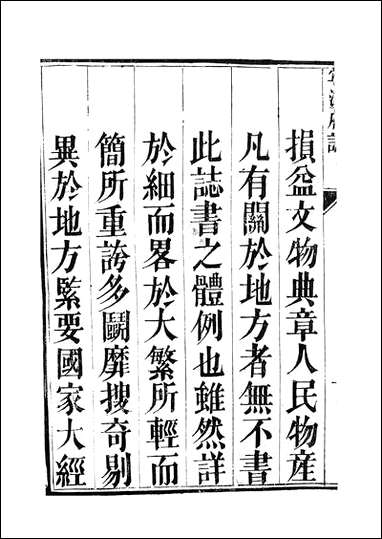 損益文物典章人民物産
凡有關於地方者無不書
此誌書之體例也雖然詳
於細而畧於大繁所輕而
簡所重誇多鬬靡搜奇剔
異於地方緊要國家大經